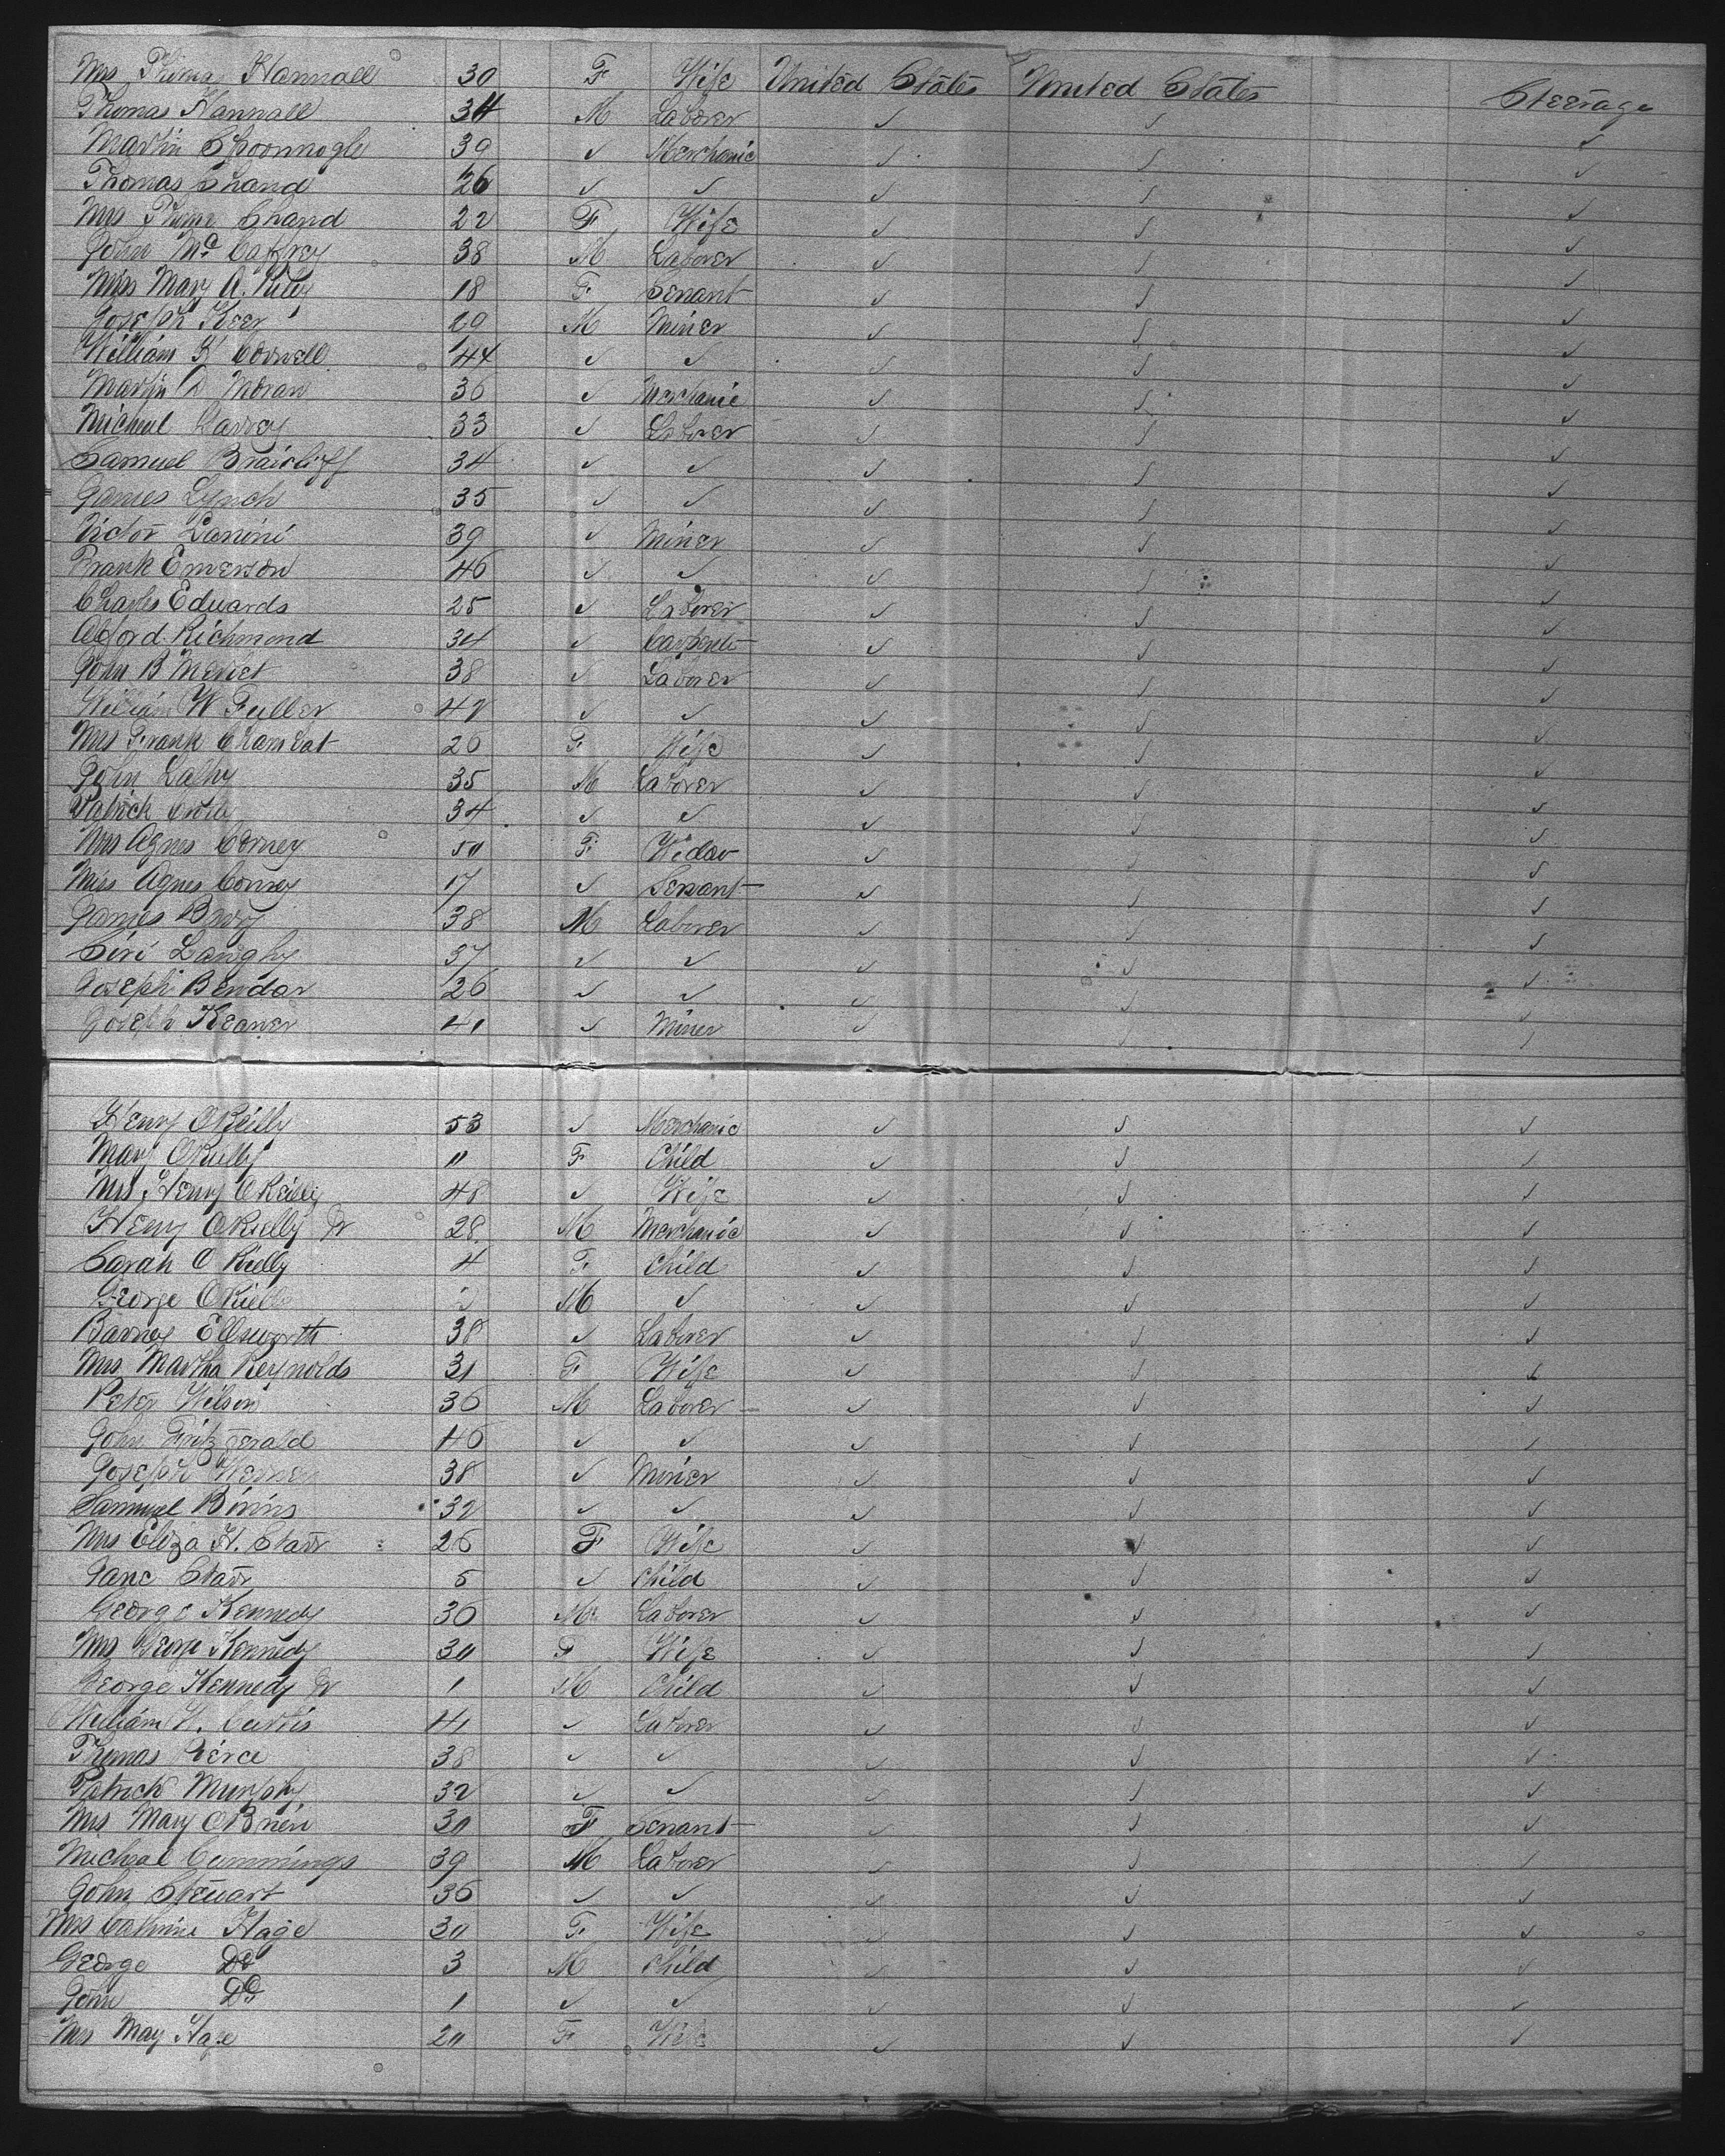 Mrs Thomas Hannall 30 F Wife United States United States Steerage
Thomas Hannall 34 M Laborer ✓ ✓ ✓
Martin 39 ✓ Merchanic ✓ ✓ ✓
Thomas Shand 26 ✓ ✓ ✓ ✓ ✓
Mrs Thomas Shand 22 F Wife ✓ ✓ ✓
John Mc Caffrey 38 M Laborer ✓ ✓ ✓
Miss Mary A. Riley 18 F Servant ✓ ✓ ✓
Joseph Keer 29 M Miner ✓ ✓ ✓
William K Cornell 44 ✓ ✓ ✓ ✓ ✓
Martin D Moran 36 ✓ Merchanic ✓ ✓ ✓
Micheal Garvey 33 ✓ Laborer ✓ ✓ ✓
Samuel Braircliff 34 ✓ ✓ ✓ ✓ ✓
James Lynch 35 ✓ ✓ ✓ ✓ ✓
Victor Lanini 39 ✓ Miner ✓ ✓ ✓
Frank Emerson 46 ✓ ✓ ✓ ✓ ✓
Charles Edwards 25 ✓ Laborer ✓ ✓ ✓
Alford Richmond 34 ✓ Carpenter ✓ ✓ ✓
John B Merict 38 ✓ Laborer ✓ ✓ ✓
William W Fuller 42 ✓ ✓ ✓ ✓ ✓
Mrs Frank 26 F Wife ✓ ✓ ✓
John Lathy 35 M Laborer ✓ ✓ ✓
Patrick 34 ✓ ✓ ✓ ✓ ✓
Mrs Agnes Corney 50 F Widow ✓ ✓ ✓
Miss Agnes Corney 17 ✓ Servant ✓ ✓ ✓
James Barry 38 M Laborer ✓ ✓ ✓
Langhy 37 ✓ ✓ ✓ ✓ ✓
Joseph Bendar 26 ✓ ✓ ✓ ✓ ✓
Joseph Keaner 41 ✓ Miner ✓ ✓ ✓
Henry OReilly 53 ✓ Merchanic ✓ ✓ ✓
Mary OReilly 11 F Child ✓ ✓ ✓
Mrs Henry OReilly 48 ✓ Wife ✓ ✓ ✓
Henry OReilly Jr 28 M Merchanic ✓ ✓ ✓
Sarah O Rielly 4 F Child ✓ ✓ ✓
George ORielly M ✓ ✓ ✓ ✓
Barney Ellsworth 38 ✓ Laborer ✓ ✓ ✓
Mrs Martha Reynolds 31 F Wife ✓ ✓ ✓
Peter Wilson 36 M Laborer ✓ ✓ ✓
John Fritzgerald 46 ✓ ✓ ✓ ✓ ✓
Joseph 38 ✓ Miner ✓ ✓ ✓
Samuel Binns 32 ✓ ✓ ✓ ✓ ✓
Mrs Eliza H. Starr 26 F Wife ✓ ✓ ✓
Jane Starr 5 ✓ Child ✓ ✓ ✓
George Kennedy 36 M Laborer ✓ ✓ ✓
Mrs George Kennedy 30 F Wife ✓ ✓ ✓
George Kennedy Jr 1 M Child ✓ ✓ ✓
William H. Curtis 41 ✓ Laborer ✓ ✓ ✓
Thomas Pierce 38 ✓ ✓ ✓ ✓ ✓
Patrick Murphy 32 ✓ ✓ ✓ ✓ ✓
Mrs Mary OBrien 30 F Servant ✓ ✓ ✓
Micheal Cummings 39 M Laborer ✓ ✓ ✓
John Stewart 36 ✓ ✓ ✓ ✓ ✓
Mrs Cathrine Hage 30 F Wife ✓ ✓ ✓
George Do 3 M Child ✓ ✓ ✓
John Do 1 ✓ ✓ ✓ ✓ ✓
Mrs May Hage 20 F Wife ✓ ✓ ✓